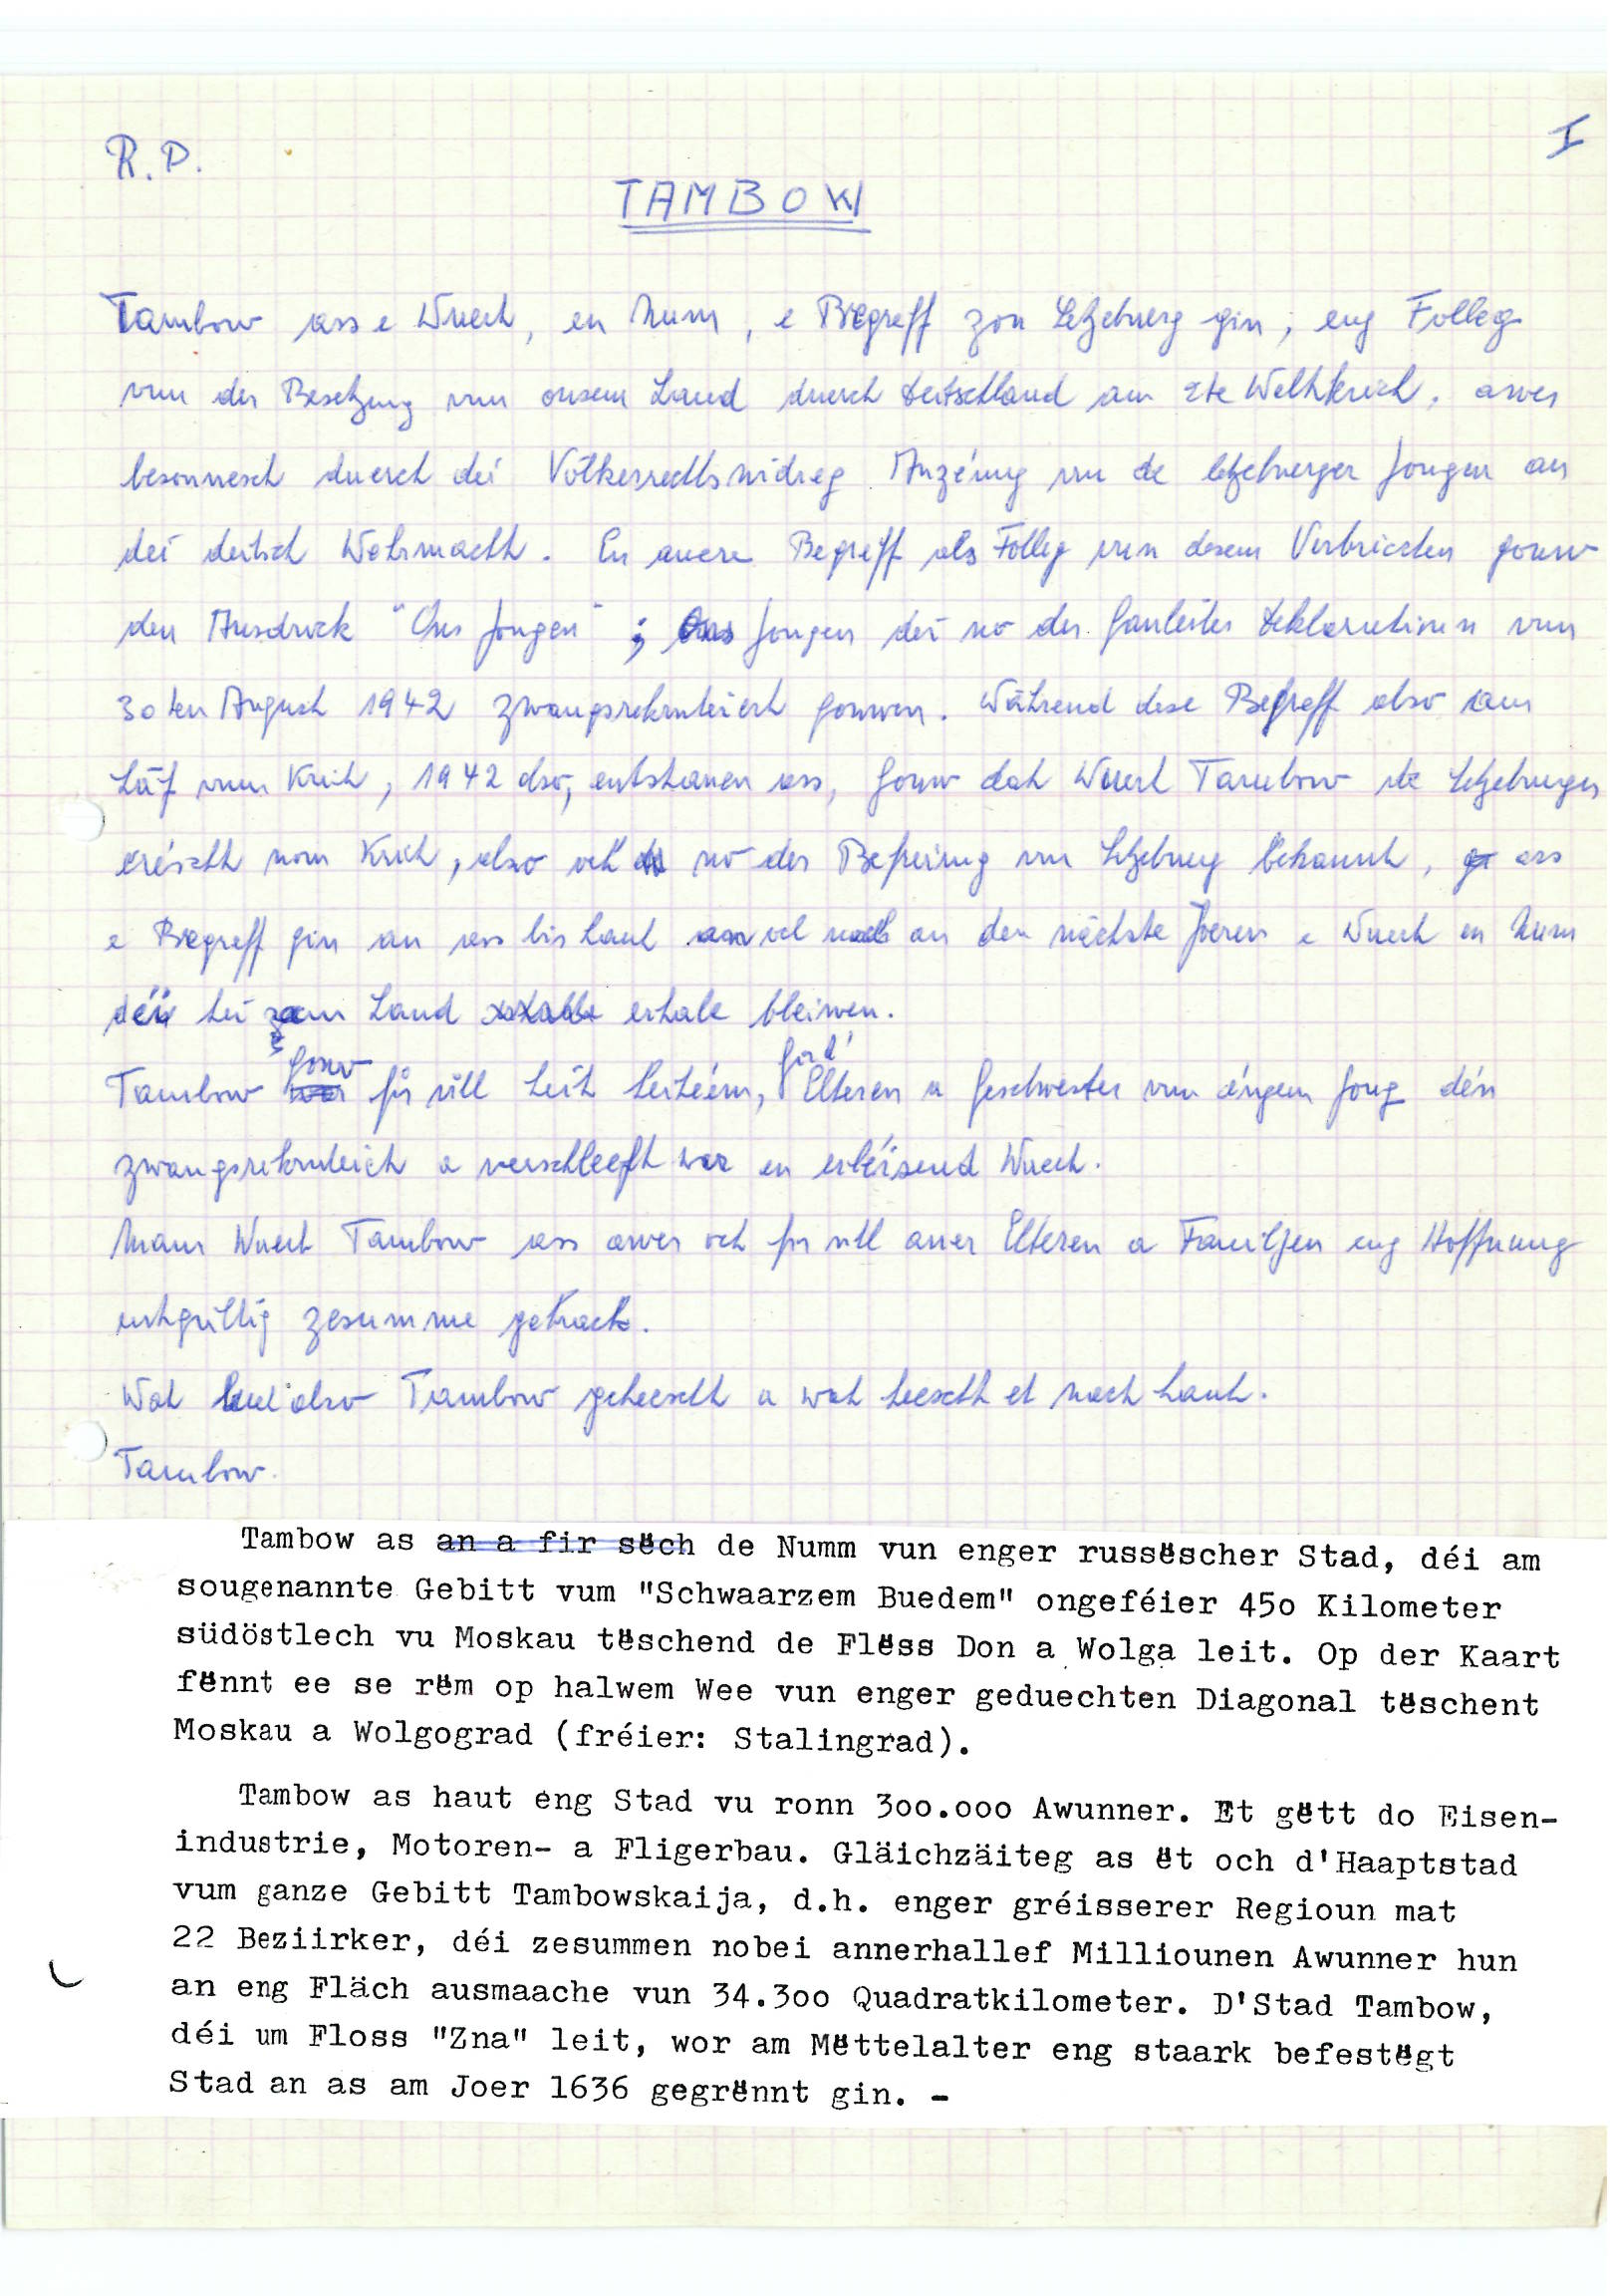 R.P.
I
TAMBOW
Tambow ass e Wuert, en Num, e Begreff zou Letzebuerg gin, eng Folleg
vun der Besetzung vun onsem Land duerch Deitschland am 2te Weltkrich, awer
besonnesch duerch dei Völkerrechtswidreg Anzéiung vun de letzebuerger Jongen an
dei deitsch Wehrmacht. En anere Begreff als Folleg vun desem Verbriechen gouw
den Ausdrock "Ons Jongen"; Ons Jongen dei no der Gauleiter Deklaratioun vun
30ten August 1942 zwangsrekrutéiert gouwen. Während dese Begreff also am
Läf vum Krich, 1942 also, entstanen ass, gouw dat Wuert Tambow de Letzeburger
eréischt nom Krich, also och no der Befreiung vun Letzebuerg bekannt, ass
e Begreff gin an ass bis haut an den nächste Joeren e Wuert en Num
déi hei am Land erhale bleiwen.
Tambow gouw fir vill Leit heiheem, fir d' Elteren a Geschwester vun éngem Jong dén
zwangsrekrutéiert a verschleeft war en erléisend Wuert.
Mam Wuert Tambow ass awer och fir vill aner Elteren a Familjen eng Hoffnung
entgültig zesumme gekracht.
Wat huet also Tambow geheescht a wat heescht et nach haut.
Tambow.
Tambow as an a fir sëch de Numm vun enger russëscher Stad, déi am
sougenannte Gebitt vum "Schwaarzem Buedem" ongeféier 45o Kilometer
südöstlech vu Moskau tëschend de Flëss Don a Wolga leit. Op der Kaart
fënnt ee se rëm op halwem Wee vun enger geduechten Diagonal tëschent
Moskau a Wolgograd (fréier: Stalingrad).
Tambow as haut eng Stad vu ronn 3oo.ooo Awunner. Et gëtt do Eisen-
industrie, Motoren- a Fligerbau. Gläichzäiteg as ët och d'Haaptstad
vum ganze Gebitt Tambowskaija, d.h. enger gréisserer Regioun mat
22 Beziirker, déi zesummen nobei annerhallef Milliounen Awunner hun
an eng Fläch ausmaache vun 34.3oo Quadratkilometer. D'Stad Tambow,
déi um Floss "Zna" leit, wor am Mëttelalter eng staark befestëgt
Stad an as am Joer 1636 gegrënnt gin. -